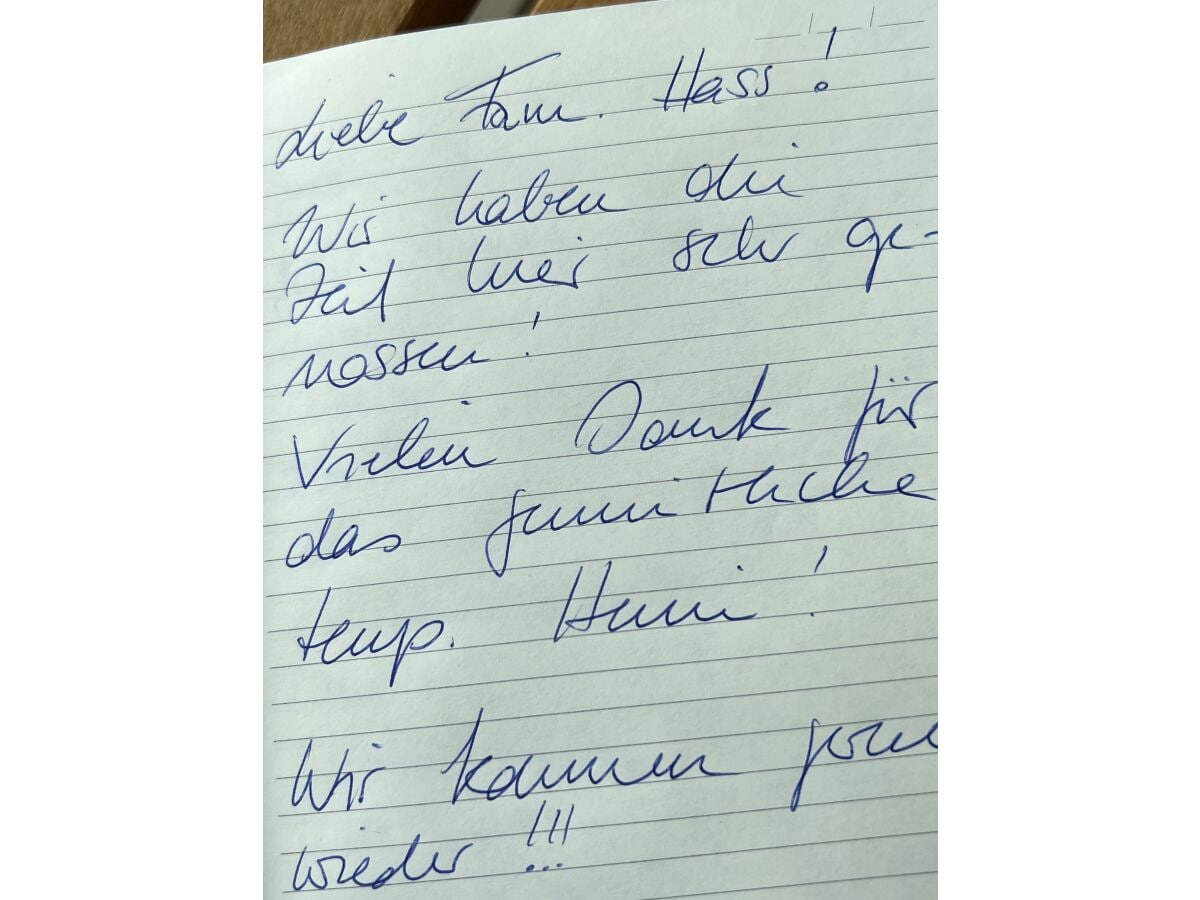 Liebe Fam. Hass!
Wir haben die
Zeit hier sehr ge-
nossen!
Vielen Dank für
das gemütliche
temp. Heim!
Wir kommen gerne
wieder!!!